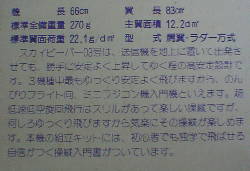 機 長 66cm 翼 長 83cm
標準全備重量 270g 主翼面積 12.2d㎡
標準翼面荷重 22.1g/d㎡ 型 式 高翼・ラダー方式
スカイビーバー03号は、送信機を地上に置いて出発さ
せても、勝手に安定よく上昇してゆく程の高安定設計で
す。3機種中最もゆっくり安定よく飛びますから、のん
びりフライト向、ミニラジコン機入門機といえます。超
低速低空旋回飛行はスリルがあって楽しい操縦ですが、
何しろゆっくり飛びますから気楽にその操縦が楽しめま
す。本機の組立キットには、初心者でも独学で飛ばせる
自信がつく操縦入門書がついています。